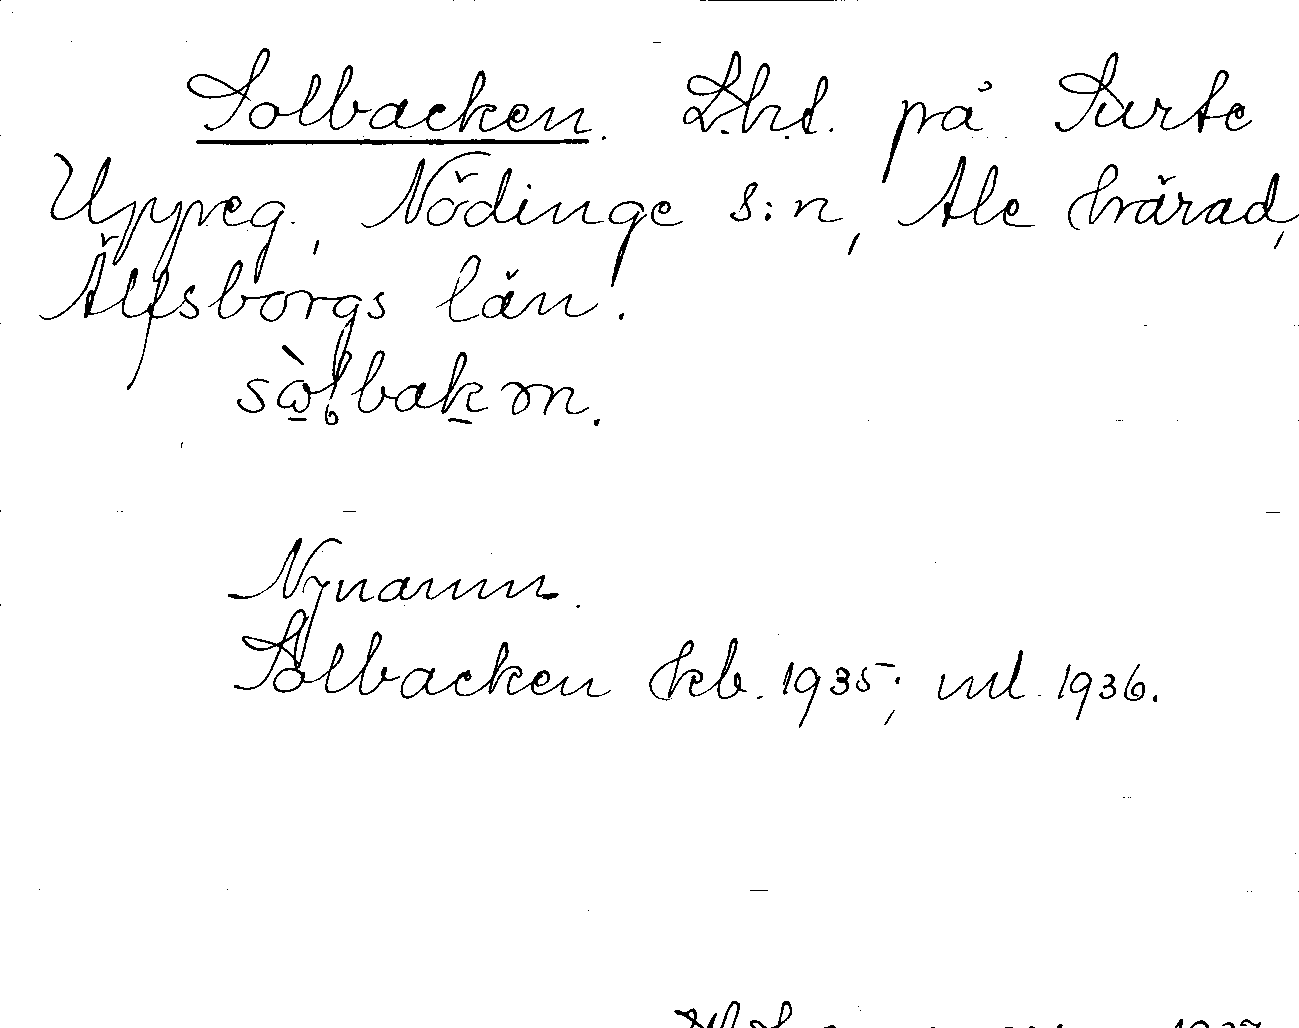 Solbacken. L.h.t. på Surte
Uppeg., Nödinge s:n, Ale härad,
Älfsborgs län.

Nynamn.
Solbacken hkb. 1935; ml. 1936.
1937